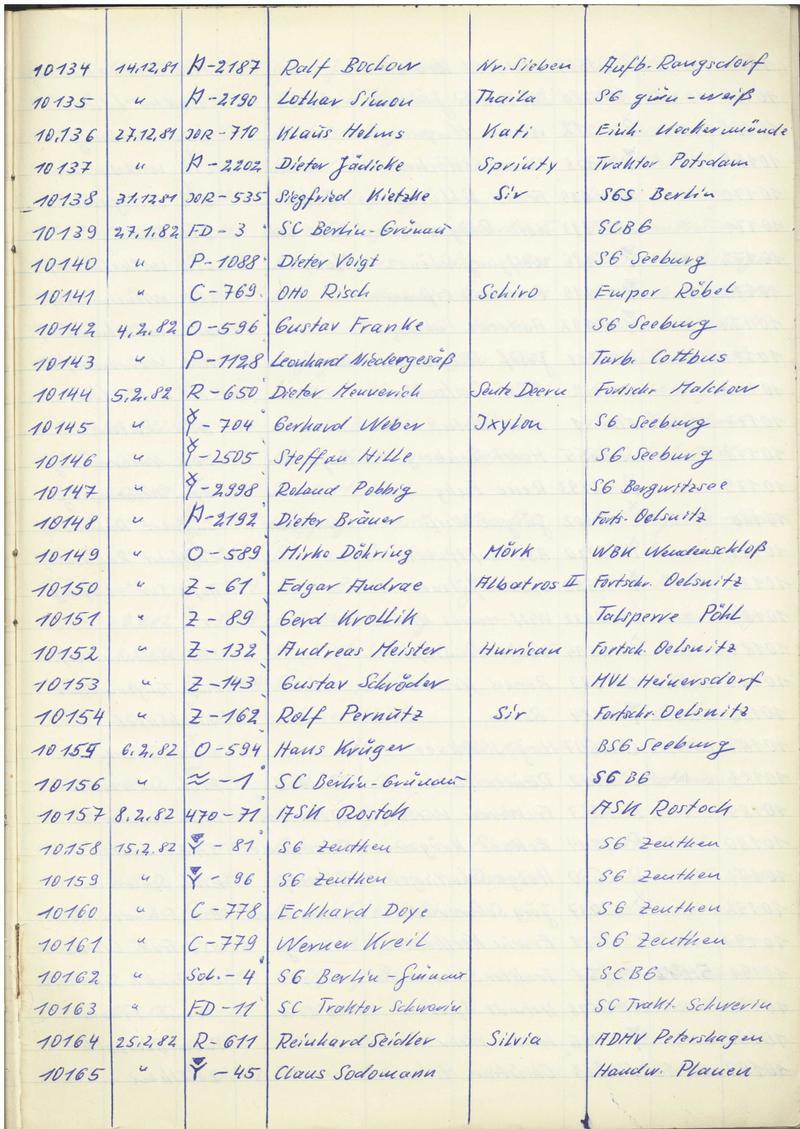 10134 14.12.81 A-2187 Ralf Bochow Nr. Sieben Aufb. Rangsdorf
10135 " A-2190 Lothar Simon Thaila SG grün-weiß
10.136 27.12.81 JOR-710 Klaus Helms Kati Einh. Ueckermünde
10137 " A-2202 Dieter Jädicke Sprinty Traktor Potsdam
10138 31.12.81 JOR-535 Siegfried Kietzke Sir SGS Berlin
10139 27.1.82 FD-3 SC Berlin-Grünau SCBG
10140 " P-1088 Dieter Voigt SG Seeburg
10141 " C-769 Otto Risch Schiro Empor Röbel
10142 4.2.82 O-596 Gustav Franke SG Seeburg
10143 " P-1128 Leonhard Niedergesäß Turb. Cottbus
10144 5.2.82 R-650 Dieter Mennerich Seute Deern Fortschr. Malchow
10145 " -704 Gerhard Weber Ixylon SG Seeburg
10146 " -2505 Steffan Hille SG Seeburg
10147 " -2998 Roland Pobbig SG Bergwitzsee
10148 " A-2192 Dieter Bräuer Forts. Oelsnitz
10149 " O-589 Mirko Döhring Mörk WBK Wendenschloß
10150 " Z-61 Edgar Andrae Albatros II Fortschr. Oelsnitz
10151 " Z-89 Gerd Krollik Talsperre Pöhl
10152 " Z-132 Andreas Meister Hurrican Fortsch. Oelsnitz
10153 " Z-143 Gustav Schröder MVL Heinersdorf
10154 " Z-162 Rolf Pernutz Sir Fortschr. Oelsnitz
10155 6.2.82 O-594 Hans Krüger BSG Seeburg
10156 " ≈-1 SC Berlin-Grünau SGBG
10157 8.2.82 470-71 ASK Rostok ASK Rostock
10158 15.2.82 Y-81 SG Zeuthen SG Zeuthen
10159 " Y-96 SG Zeuthen SG Zeuthen
10160 " C-778 Eckhard Doye SG Zeuthen
10161 " C-779 Werner Kreil SG Zeuthen
10162 " Sol.-4 SG Berlin-Grünau SCBG
10163 " FD-11 SC Traktor Schwerin SC Trakt. Schwerin
10164 25.2.82 R-611 Reinhard Seidler Silvia ADMV Petershagen
10165 " Y-45 Claus Sodomann Handw. Plauen